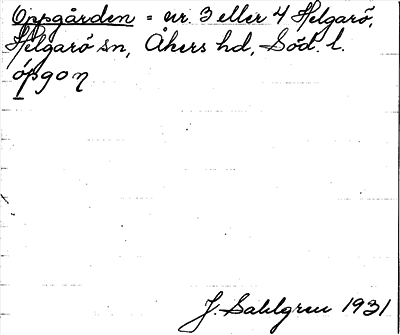 Oppgården = nr. 3 eller 4 Helgarö,
Helgarö sn, Åkers hd, Söd. l.
ópgoɳ
J. Sahlgren 1931